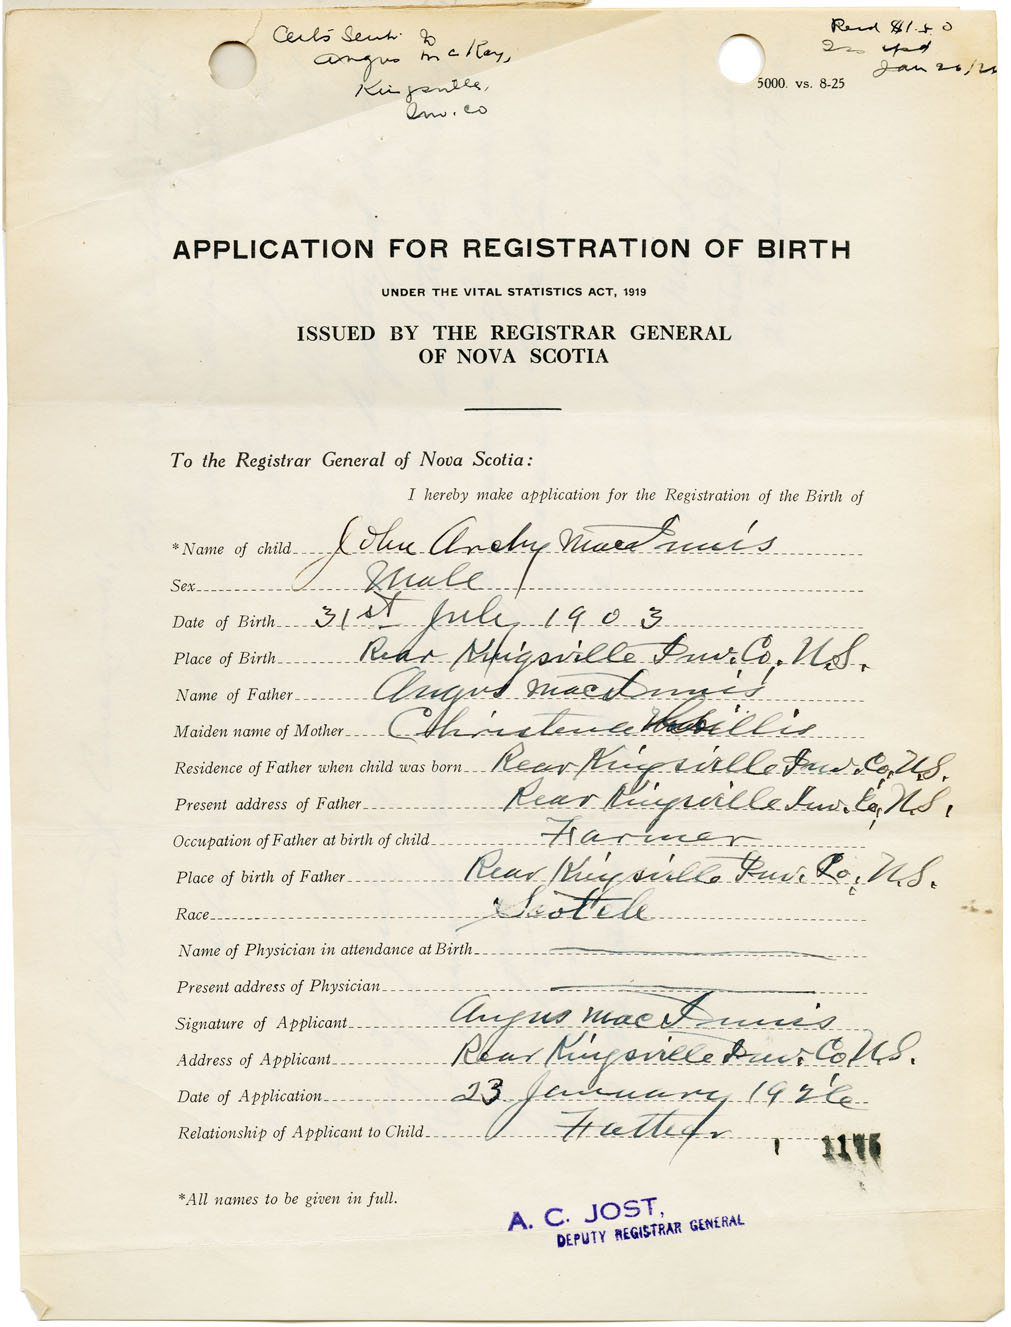 Certs Sent to
Angus McKay,
Kingsville,
Inv. Co
Recd $1.50
Jan 26/26
5000. vs. 8-25
APPLICATION FOR REGISTRATION OF BIRTH
UNDER THE VITAL STATISTICS ACT, 1919
ISSUED BY THE REGISTRAR GENERAL
OF NOVA SCOTIA
To the Registrar General of Nova Scotia:
I hereby make application for the Registration of the Birth of
*Name of child John Archy MacInnis
Sex Male
Date of Birth 31st July 1903
Place of Birth Rear Kingsville Inv. Co. N.S.
Name of Father Angus MacInnis
Maiden name of Mother Christena Gillis
Residence of Father when child was born Rear Kingsville Inv. Co, N.S.
Present address of Father Rear Kingsville Inv. Co, N.S.
Occupation of Father at birth of child Farmer
Place of birth of Father Rear Kingsville Inv. Co, N.S.
Race Scotch
Name of Physician in attendance at Birth
Present address of Physician
Signature of Applicant Angus MacInnis
Address of Applicant Rear Kingsville Inv. Co N.S.
Date of Application 23 January 1926
Relationship of Applicant to Child Father
*All names to be given in full.
A. C. JOST,
DEPUTY REGISTRAR GENERAL